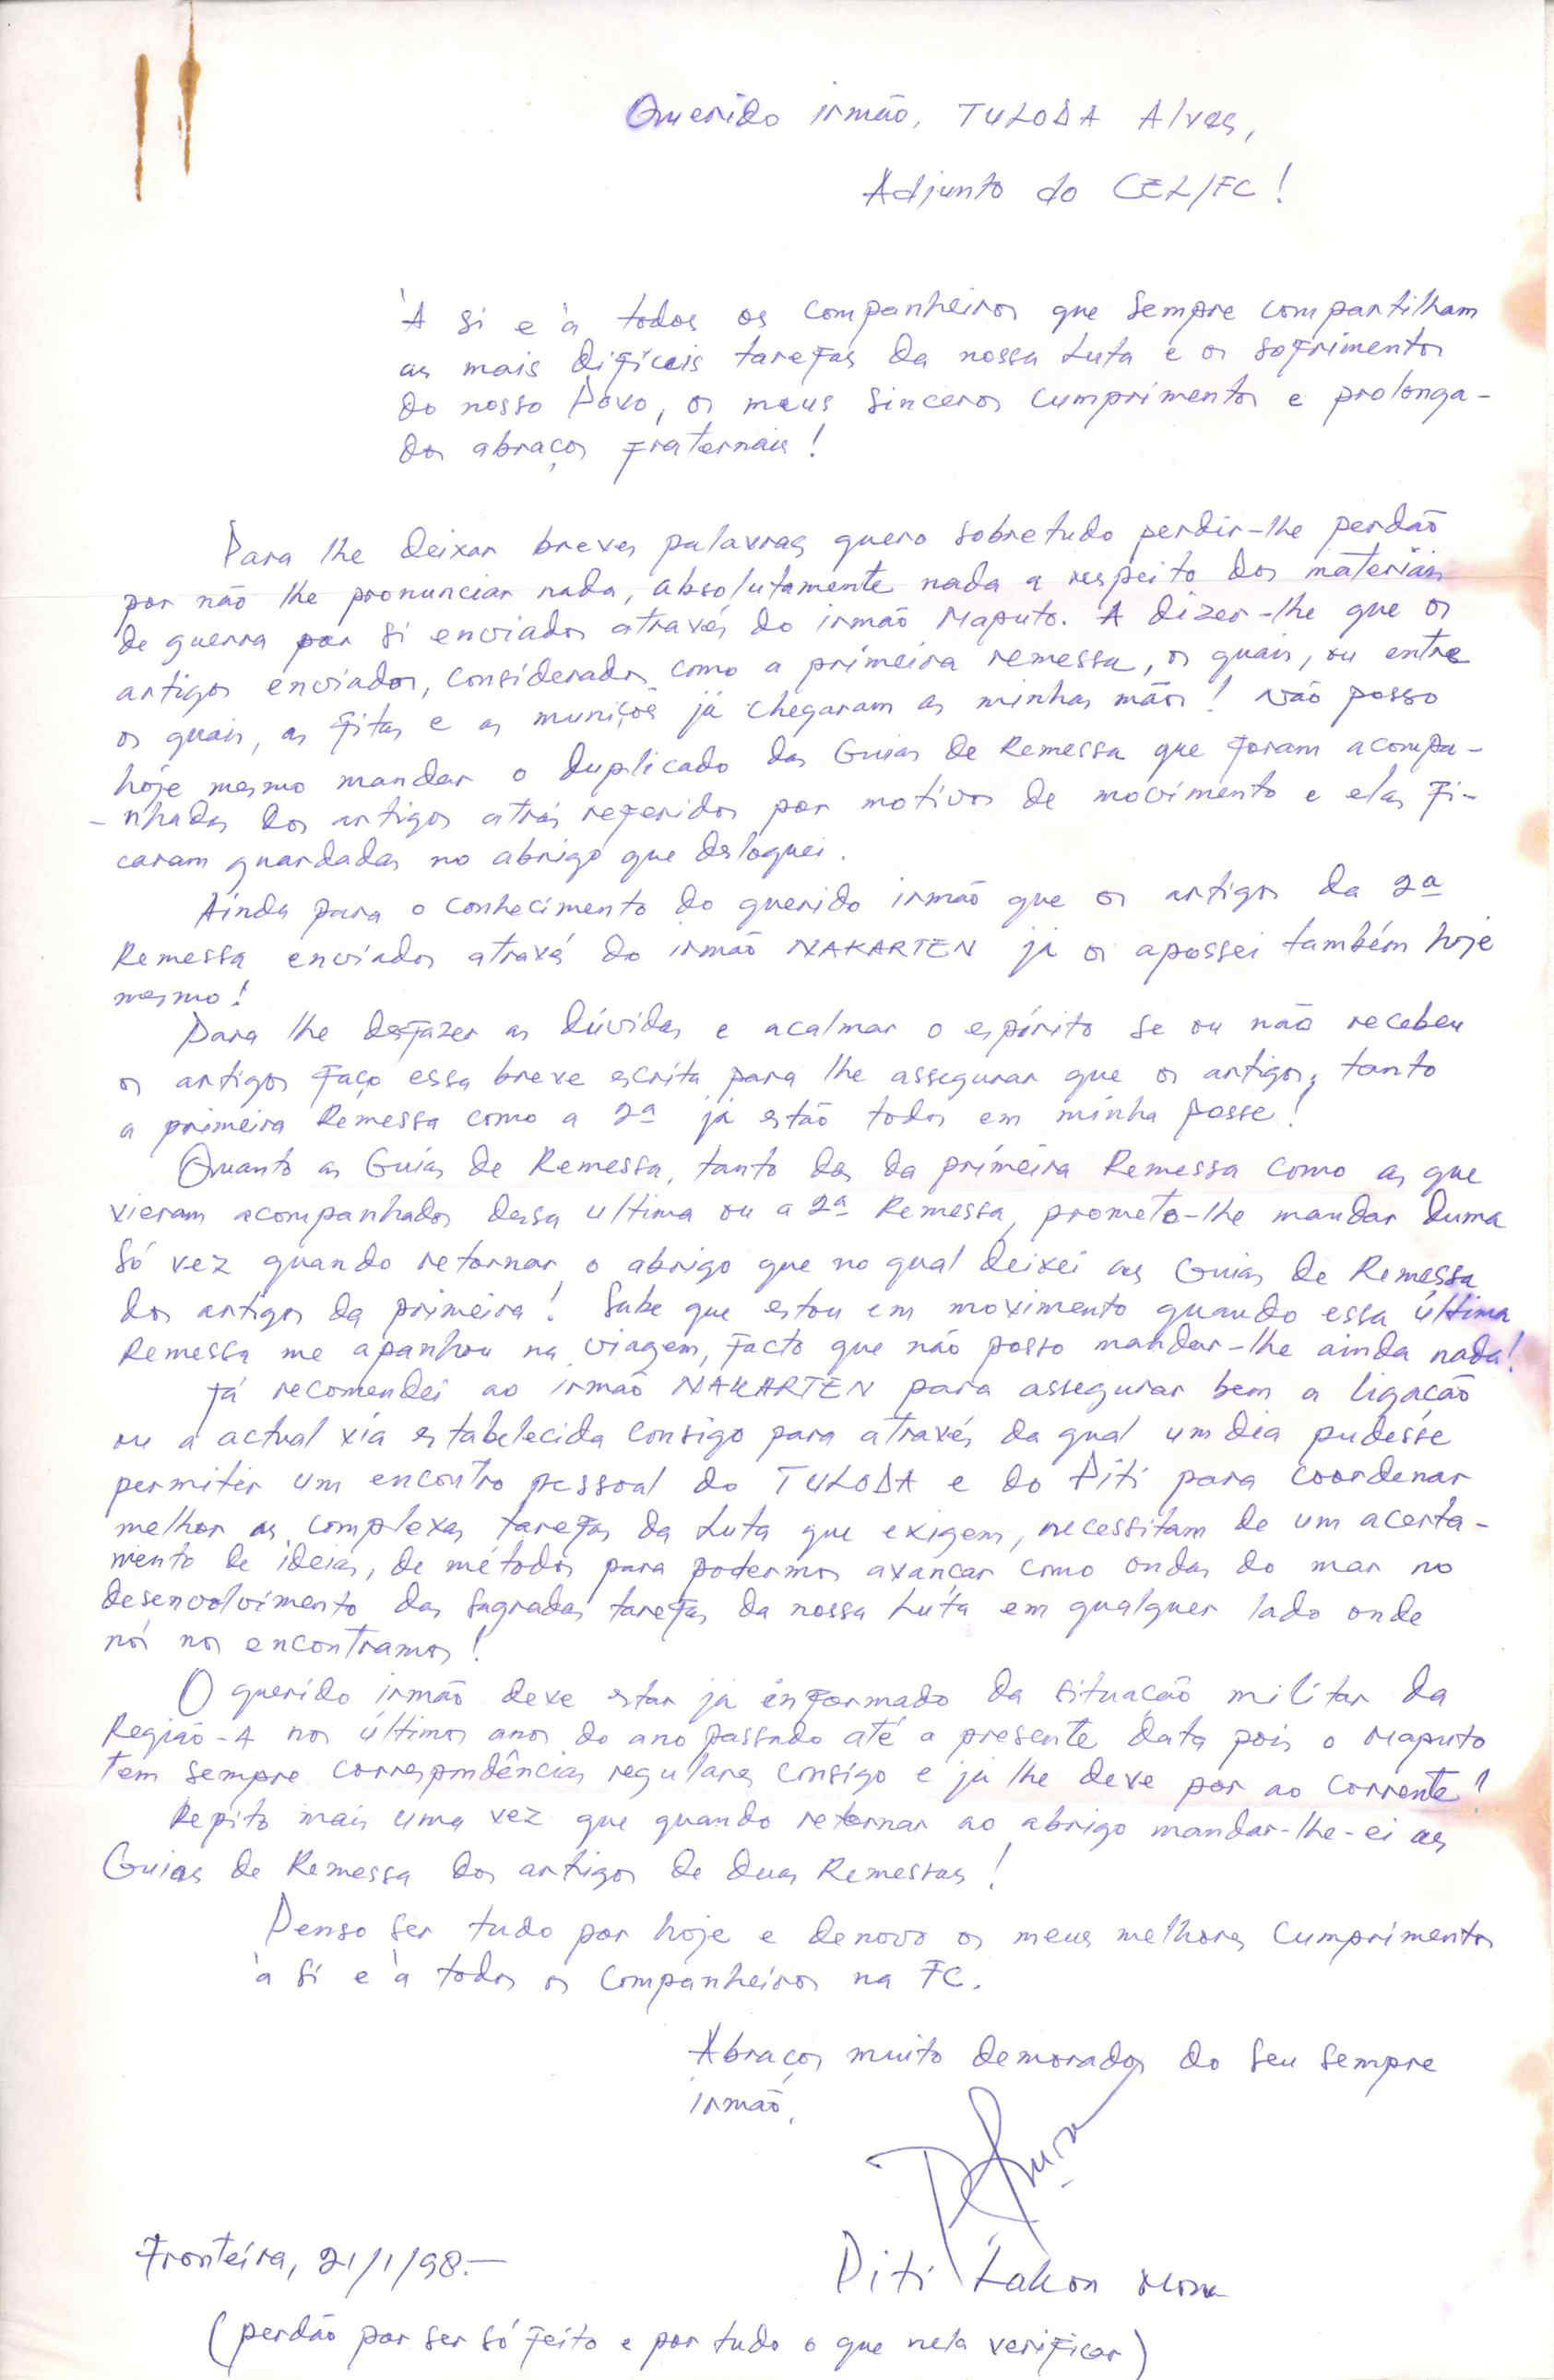 Querido irmão, TULODA Alves,
Adjunto do CEL/FC!
'A si e à todos os companheiros que sempre compartilham
as mais difíceis tarefas da nossa Luta e os sofrimentos
do nosso Povo, os meus sinceros cumprimentos e prolonga-
dos abraços fraternais!
Para lhe deixar breves palavras quero sobretudo perdir-lhe perdão
por não lhe pronunciar nada, absolutamente nada a respeito dos materiais
de guerra por si enviados através do irmão Maputo. A dizer-lhe que os
artigos enviados, considerados como a primeira remessa, os quais, ou entre
os quais, as fitas e as muniçoẽ já chegaram as minhas mãos! Não posso
hoje mesmo mandar o duplicado das Guias de Remessa que foram acompa-
-nhadas dos artigos atrás referidos por motivos de movimento e elas fi-
caram guardadas no abrigo que desloquei.
Ainda para o conhecimento do querido irmão que os artigos da 2ª
Remessa enviados através do irmão NAKARTEN já os apossei também hoje
mesmo!
Para lhe desfazer as dúvidas e acalmar o espírito se ou não recebeu
os artigos faço essa breve escrita para lhe assegurar que os artigos, tanto
a primeira Remessa como a 2ª já estão todos em minha posse!
Quanto as Guias de Remessa, tanto das da primeira Remessa como as que
vieram acompanhados dessa ultima ou a 2ª Remessa, prometo-lhe mandar duma
só vez quando retornar o abrigo que no qual deixei as Guias de Remessa
dos artigos da primeira! Sabe que estou em movimento quando essa última
Remessa me apanhou na viagem, facto que não posso mandar-lhe ainda nada!
Já recomendei ao irmão NAKARTEN para assegurar bem a ligação
ou a actual via estabelecida consigo para através da qual um dia pudesse
permitir um encontro pessoal do TULODA e do Piti para coordenar
melhor as complexas tarefas da Luta que exigem, necessitam de um acerta-
mento de ideias, de métodos para podermos avançar como ondas do mar no
desenvolvimento das sagradas tarefas da nossa Luta em qualquer lado onde
nós nos encontramos!
O querido irmão deve estar já informado da situação militar da
Região-A nos últimos anos do ano passado até a presente data pois o Maputo
tem sempre correspondências regulares consigo e já lhe deve por ao corrente!
Repito mais uma vez que quando retornar ao abrigo mandar-lhe-ei as
Guias de Remessa dos artigos de duas Remessas!
Penso ser tudo por hoje e denovo os meus melhores cumprimentos
à si e à todos os companheiros na FC.
Abraços muito demorados do seu sempre
irmão,
Fronteira, 21/1/98.-
Piti Lakon
(perdão por ser só feito e por tudo o que nela verificar)